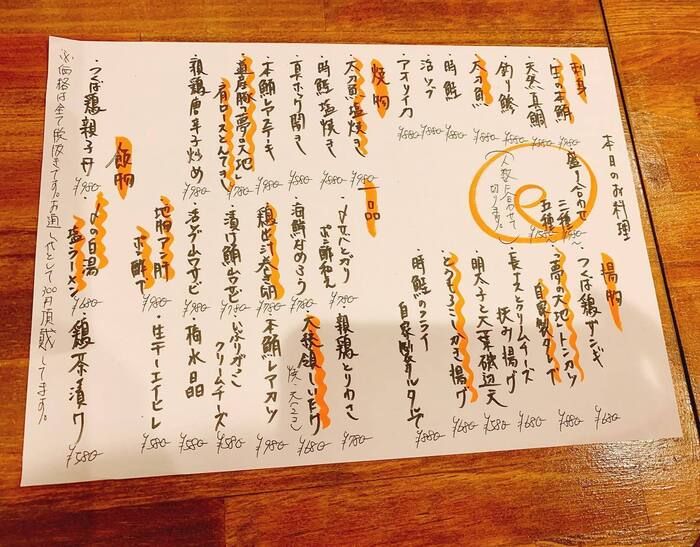 本日のお料理
刺身
・生の本鮪 ¥880-
・天然真鯛 ¥880-
・釣り鯵 ¥880-
・太刀魚 ¥880-
・時鮭 ¥880-
・活ツブ ¥880-
・アオリイカ ¥880-
盛り合わせ
三種
五種 ¥1580-
(人数に合わせて切ります。)
焼物
・太刀魚塩焼き ¥980-
・時鮭塩焼き ¥880-
・真ホッケ開き
・本鮪レアステーキ ¥980-
・道産豚「夢の大地」肩ロースとんてき ¥980-
・親鶏唐辛子炒め ¥780-
揚物
・つくば鶏ザンギ ¥680-
・「夢の大地」トンカツ 自家製タレで ¥980-
・長芋とクリームチーズ挟み揚げ ¥680-
・明太子と大葉磯辺天 ¥580-
・とうもろこしかき揚げ ¥680-
・時鮭のフライ 自家製タルタルで ¥880-
一品
・〆さばとガリ ポン酢和え ¥780-
・海鮮なめろう ¥780-
・穂出す春菊
・漬け鮪山ワサビ ¥780-
・活ゲソ山ワサビ ¥780-
・地物アン肝ポン酢で ¥980-
・親鶏とりわさ ¥780-
・大後領しいたけ (焼・天(2コ)) ¥680-
・本鮪レアカツ ¥980-
・いぶりがっこクリームチーズ ¥580-
・梅水晶 ¥580-
・生干コマイヒレ ¥580-
飯物
・つくば鶏親子丼 ¥980-
・〆の白湯塩ラーメン ¥680-
・鶏茶漬け ¥580-
※価格は全て税抜きです。お通し代として300円頂戴してます。